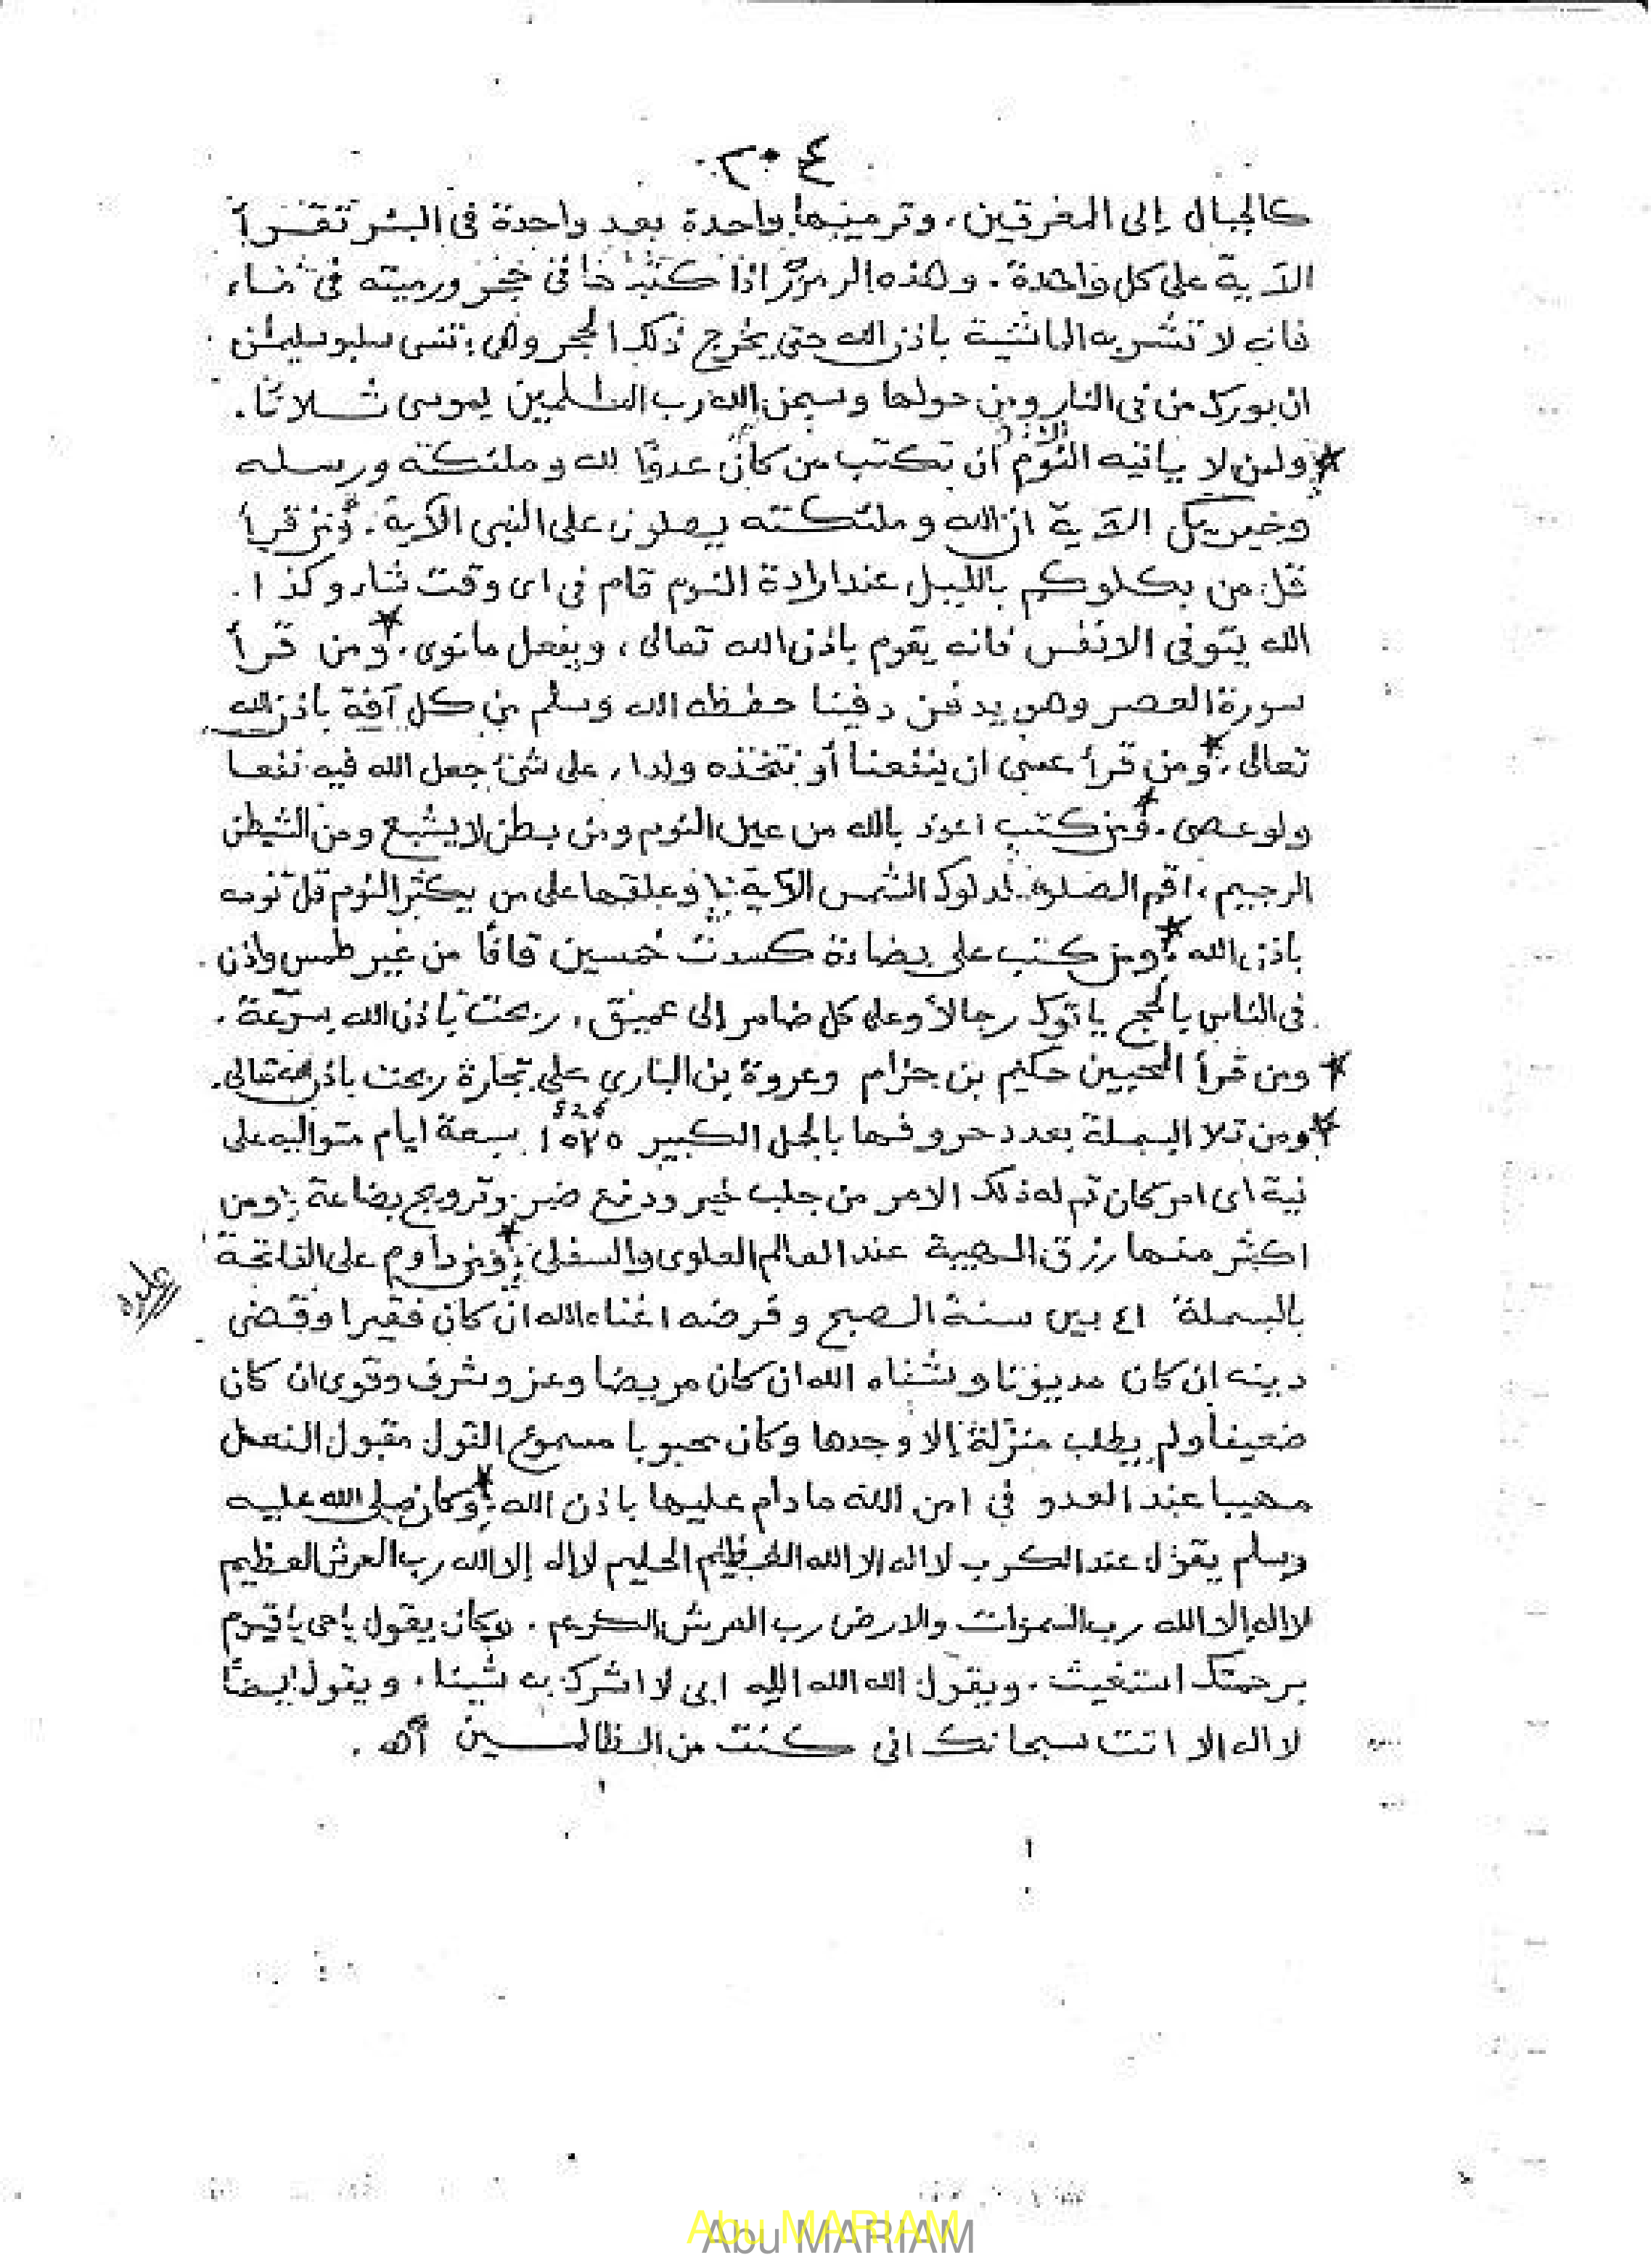 ٢٠٤
كالجبال إلى المغرقين، وترميها واحدة بعد واحدة في البئر تقرأ
الآية على كل واحدة. وهذه الرموز اذا كتبتها في حجر ورميته في ماء
فانه لا تشربه الماشية باذن الله حتى يخرج ذلك الحجر وهي:
ان بورك من في النار ومن حولها وسبحن الله رب العلمين يموسى ثلاثا.
* ولمن لا ياتيه النوم ان تكتب من كان عدوا لله وملئكته ورسله
وجبريل الآية ان الله وملئكته يصلون على النبي الآية. ومن قرأ
قل من يكلوكم بالليل عند ارادة النوم قام في اى وقت شاء وكذا.
الله يتوفى الانفس فانه يقوم باذن الله تعالى، ويفعل ما نوى. * ومن قرأ
سورة العصر وهو يدفن دفينا حفظه الله وسلم من كل آفة باذن الله
تعالى. * ومن قرأ عسى ان ينفعنا أو نتخذه ولدا، على شئ جعل الله فيه نفعا
ولو عصى. * ومن كتب اعوذ بالله من عين النوم ومن بطن لا يشبع ومن الشيطن
الرجيم، اقم الصلوة لدلوك الشمس الآية وعلقها على من يكثر النوم قل نومه
باذن الله * ومن كتب على بضاعة كسدت خمسين قافا من غير طمس واذن
في الناس بالحج ياتوك رجالا وعلى كل ضامر إلى عميق، ربحت باذن الله بسرعة.
* ومن قرأ حكيم بن حزام وعروة بن على تجارة ربحت باذن الله تعالى.
* ومن تلا البسملة بعدد حروفها بالجمل الكبير سبعة ايام متواليه على
نية اى امر كان تم له ذلك الامر من جلب خير ودفع ضر وترويج بضاعة ومن
اكثر منها رزق الهيبة عند العالم العلوى والسفلى * ومن داوم على الفاتحة
بالبسملة ٤١ بين سنة الصبح وفرضه اغناه الله ان كان فقيرا وقضى
دينه إن كان مديونا وشفاه الله ان كان مريضا وعز وشرف وقوى ان كان
ضعيفا ولم يطلب منزلة إلا وجدها وكان محبوبا مسموع القول مقبول الفعل
مهيبا عند العدو في امن الله ما دام عليها باذن الله * وكان صلى الله عليه
وسلم يقول عند الكرب لا اله الا الله العظيم الحليم لا إله إلا الله رب العرش العظيم
لا اله إلا الله رب السموات والارض رب العرش الكريم. وكان يقول يا حى يا قيوم
برحمتك استغيث. ويقول الله الله الله ربى لا اشرك به شيئا. ويقول ايضا
لا اله الا انت سبحانك انى كنت من الظالمين اه.
Abu MARIAM
Abu MARIAM